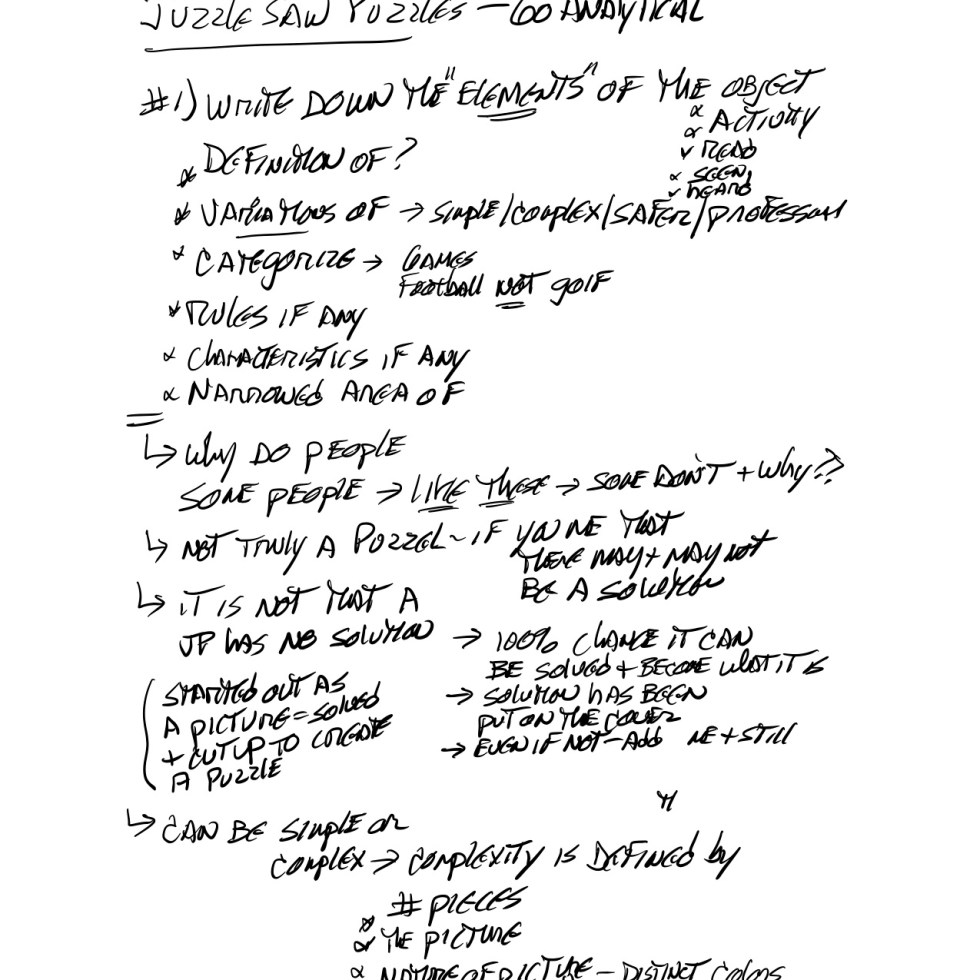 JUZZLE SAW PUZZLES - GO ANALYTICAL
#1) WRITE DOWN THE "ELEMENTS" OF THE OBJECT
ACTIVITY
READ
SEEN,
HEARD
DEFINITION OF?
VARIATIONS OF → SIMPLE/COMPLEX/SAFER/PROFESSIONAL
CATEGORIZE → GAMES
FOOTBALL NOT GOLF
RULES IF ANY
CHARACTERISTICS IF ANY
NARROWED AREA OF
↳ WHY DO PEOPLE
SOME PEOPLE → LIKE THESE → SOME DON'T + WHY??
↳ NOT TRULY A PUZZEL - IF THAT
THERE MAY + MAY NOT
BE A SOLUTION
↳ IT IS NOT THAT A
JP HAS NO SOLUTION → 100% CHANCE IT CAN
BE SOLVED + BECOME WHAT IT IS
→ SOLUTION HAS BEEN
PUT ON THE COVER
→ EVEN IF NOT - ADD ME + STILL
STARTED OUT AS
A PICTURE = SOLVED
+ CUT UP TO CREATE
A PUZZLE
↳ CAN BE SIMPLE OR
COMPLEX → COMPLEXITY IS DEFINED BY
# PIECES
THE PICTURE
NATURE OF PICTURE - DISTINCT COLORS